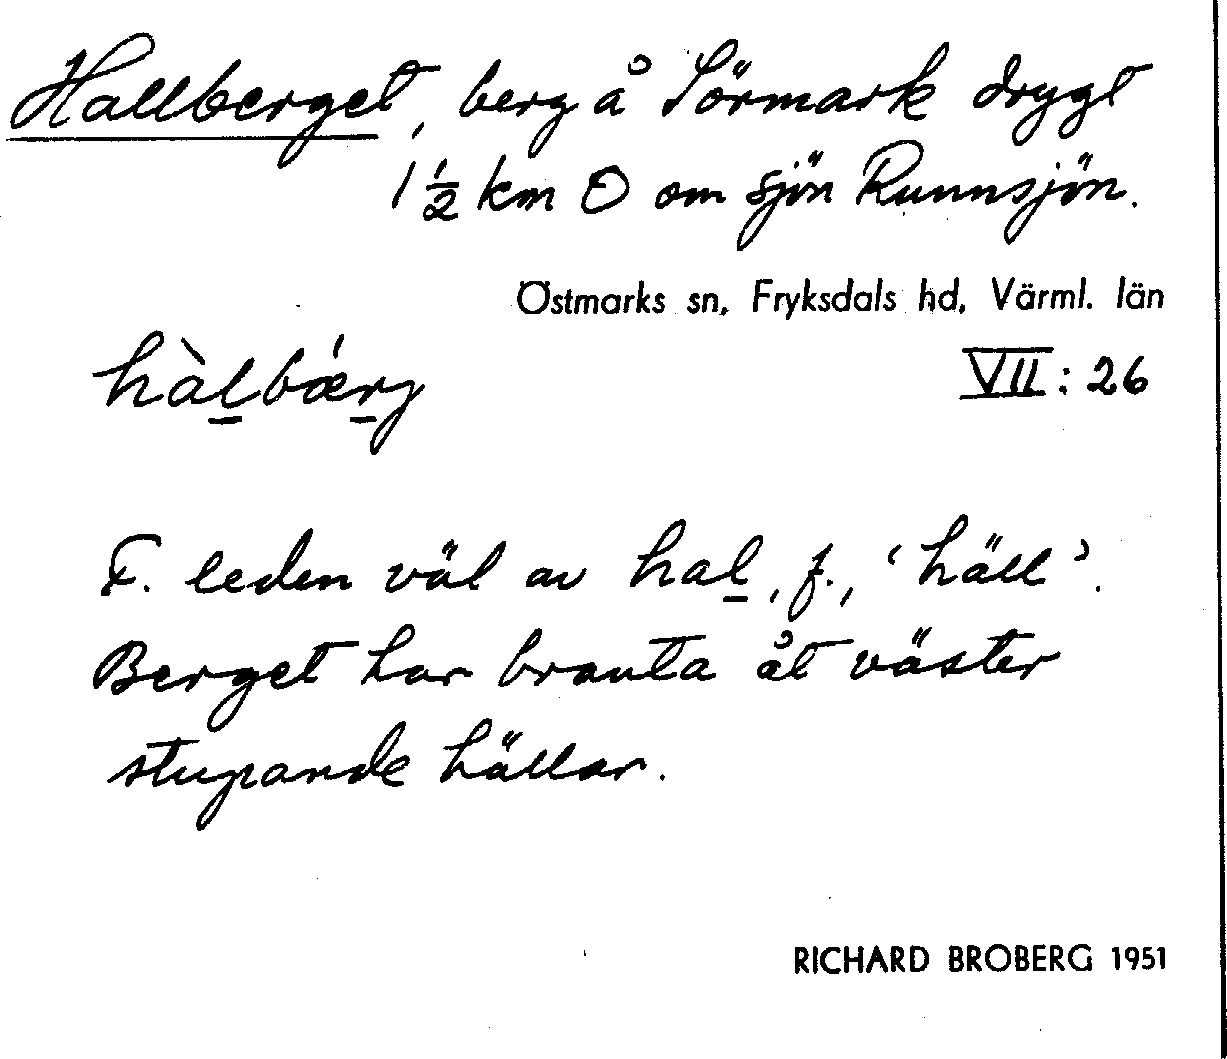 Hallberget, berg å Sörmark drygt
1 1/2 km O om sjön Runnsjön.
Östmarks sn, Fryksdals hd, Värml. län
hàl̲bǽr̲j
VII: 26
F. leden väl av hal̲, f., 'häll'.
Berget har branta åt väster
stupande hällar.
RICHARD BROBERG 1951